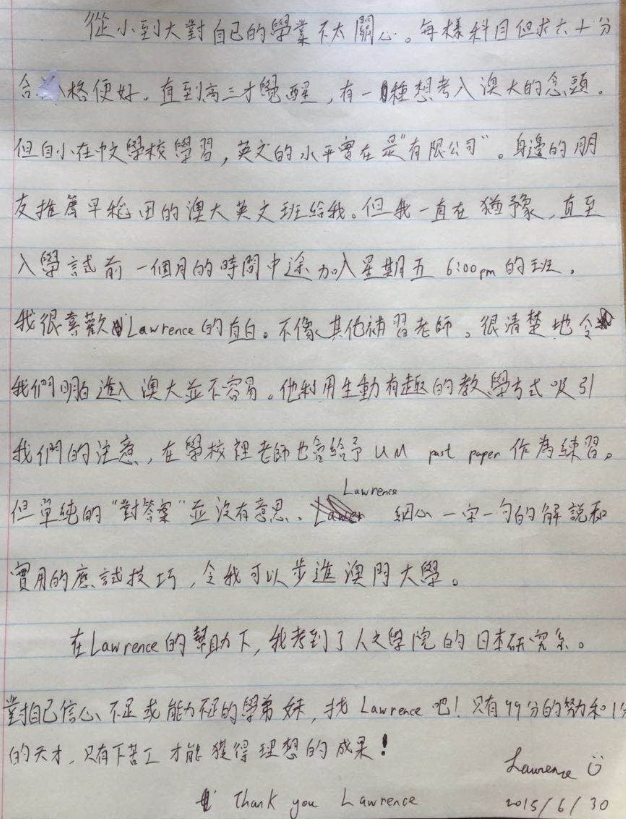 從小到大對自己的學業不太關心。每樣科目但求六十分
合格便好。直到高三才覺醒，有一種想考入澳大的念頭。
但自小在中文學校學習，英文的水平實在是"有限公司"。身邊的朋
友推薦早稻田的澳大英文班給我。但我一直在猶豫，直至
入學試前一個月的時間中途加入星期五 6:00pm 的班。
我很喜歡Lawrence的直白。不像其他補習老師，很清楚地令
我們明白進入澳大並不容易。他利用生動有趣的教學方式吸引
我們的注意，在學校裡老師也會給予 UM past paper 作為練習。
但單純的"對答案"並沒有意思、Lawrence 細心一字一句的解說和
實用的應試技巧，令我可以步進澳門大學。
在Lawrence的幫助下，我考到了人文學院的日本研究系。
對自己信心不足或能力不足的學弟妹，找 Lawrence 吧！只有99分的努力和1分
的天才，只有下苦工才能獲得理想的成果！
Thank you Lawrence
Lawrence
2015/6/30